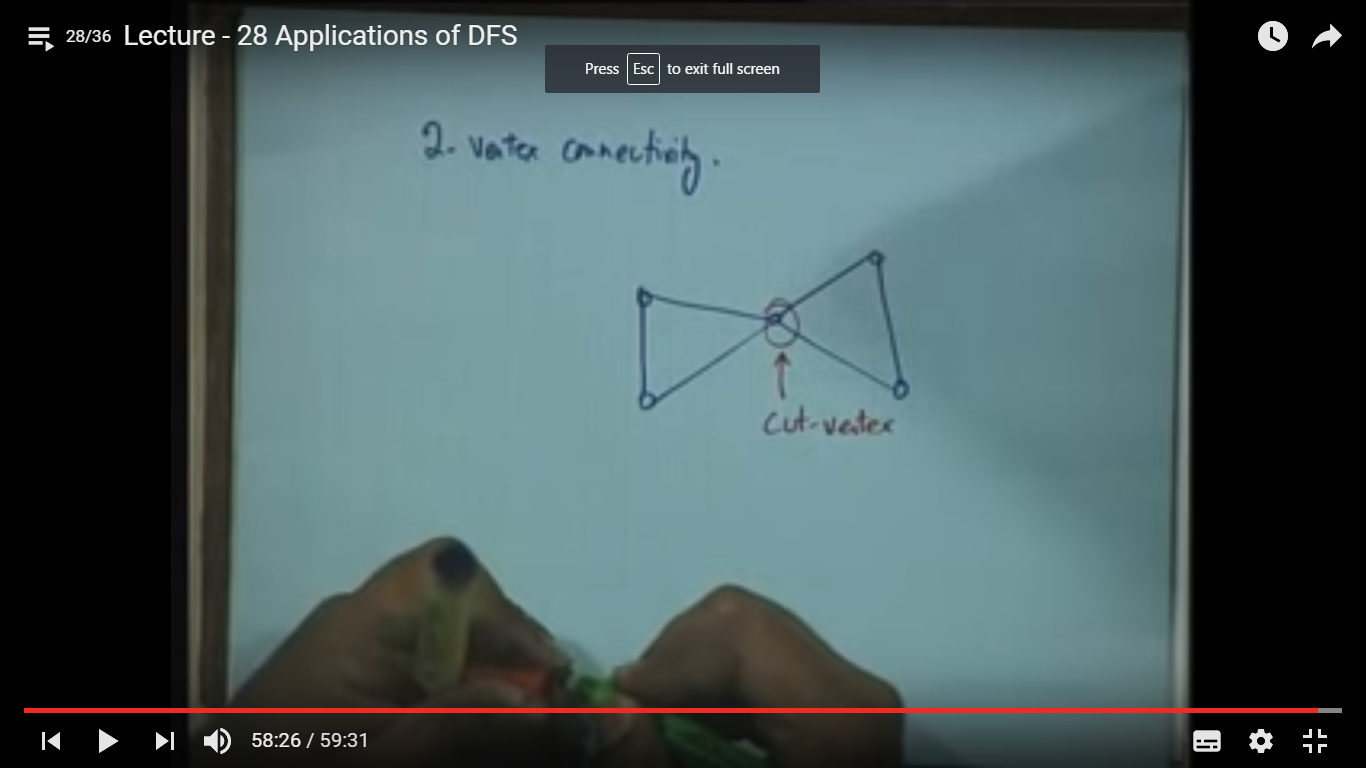 28/36 Lecture - 28 Applications of DFS
Press Esc to exit full screen
2. Vertex connectivity.
Cut-vertex
58:26 / 59:31